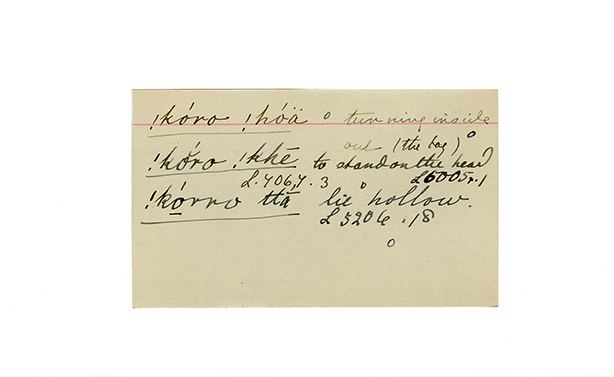 !kóro !hóä turning inside
out (the bag)
!kóro !khē to stand on the head
L.706,7.3 L6005r.1
!kórro ttā lie hollow.
L 5206.18